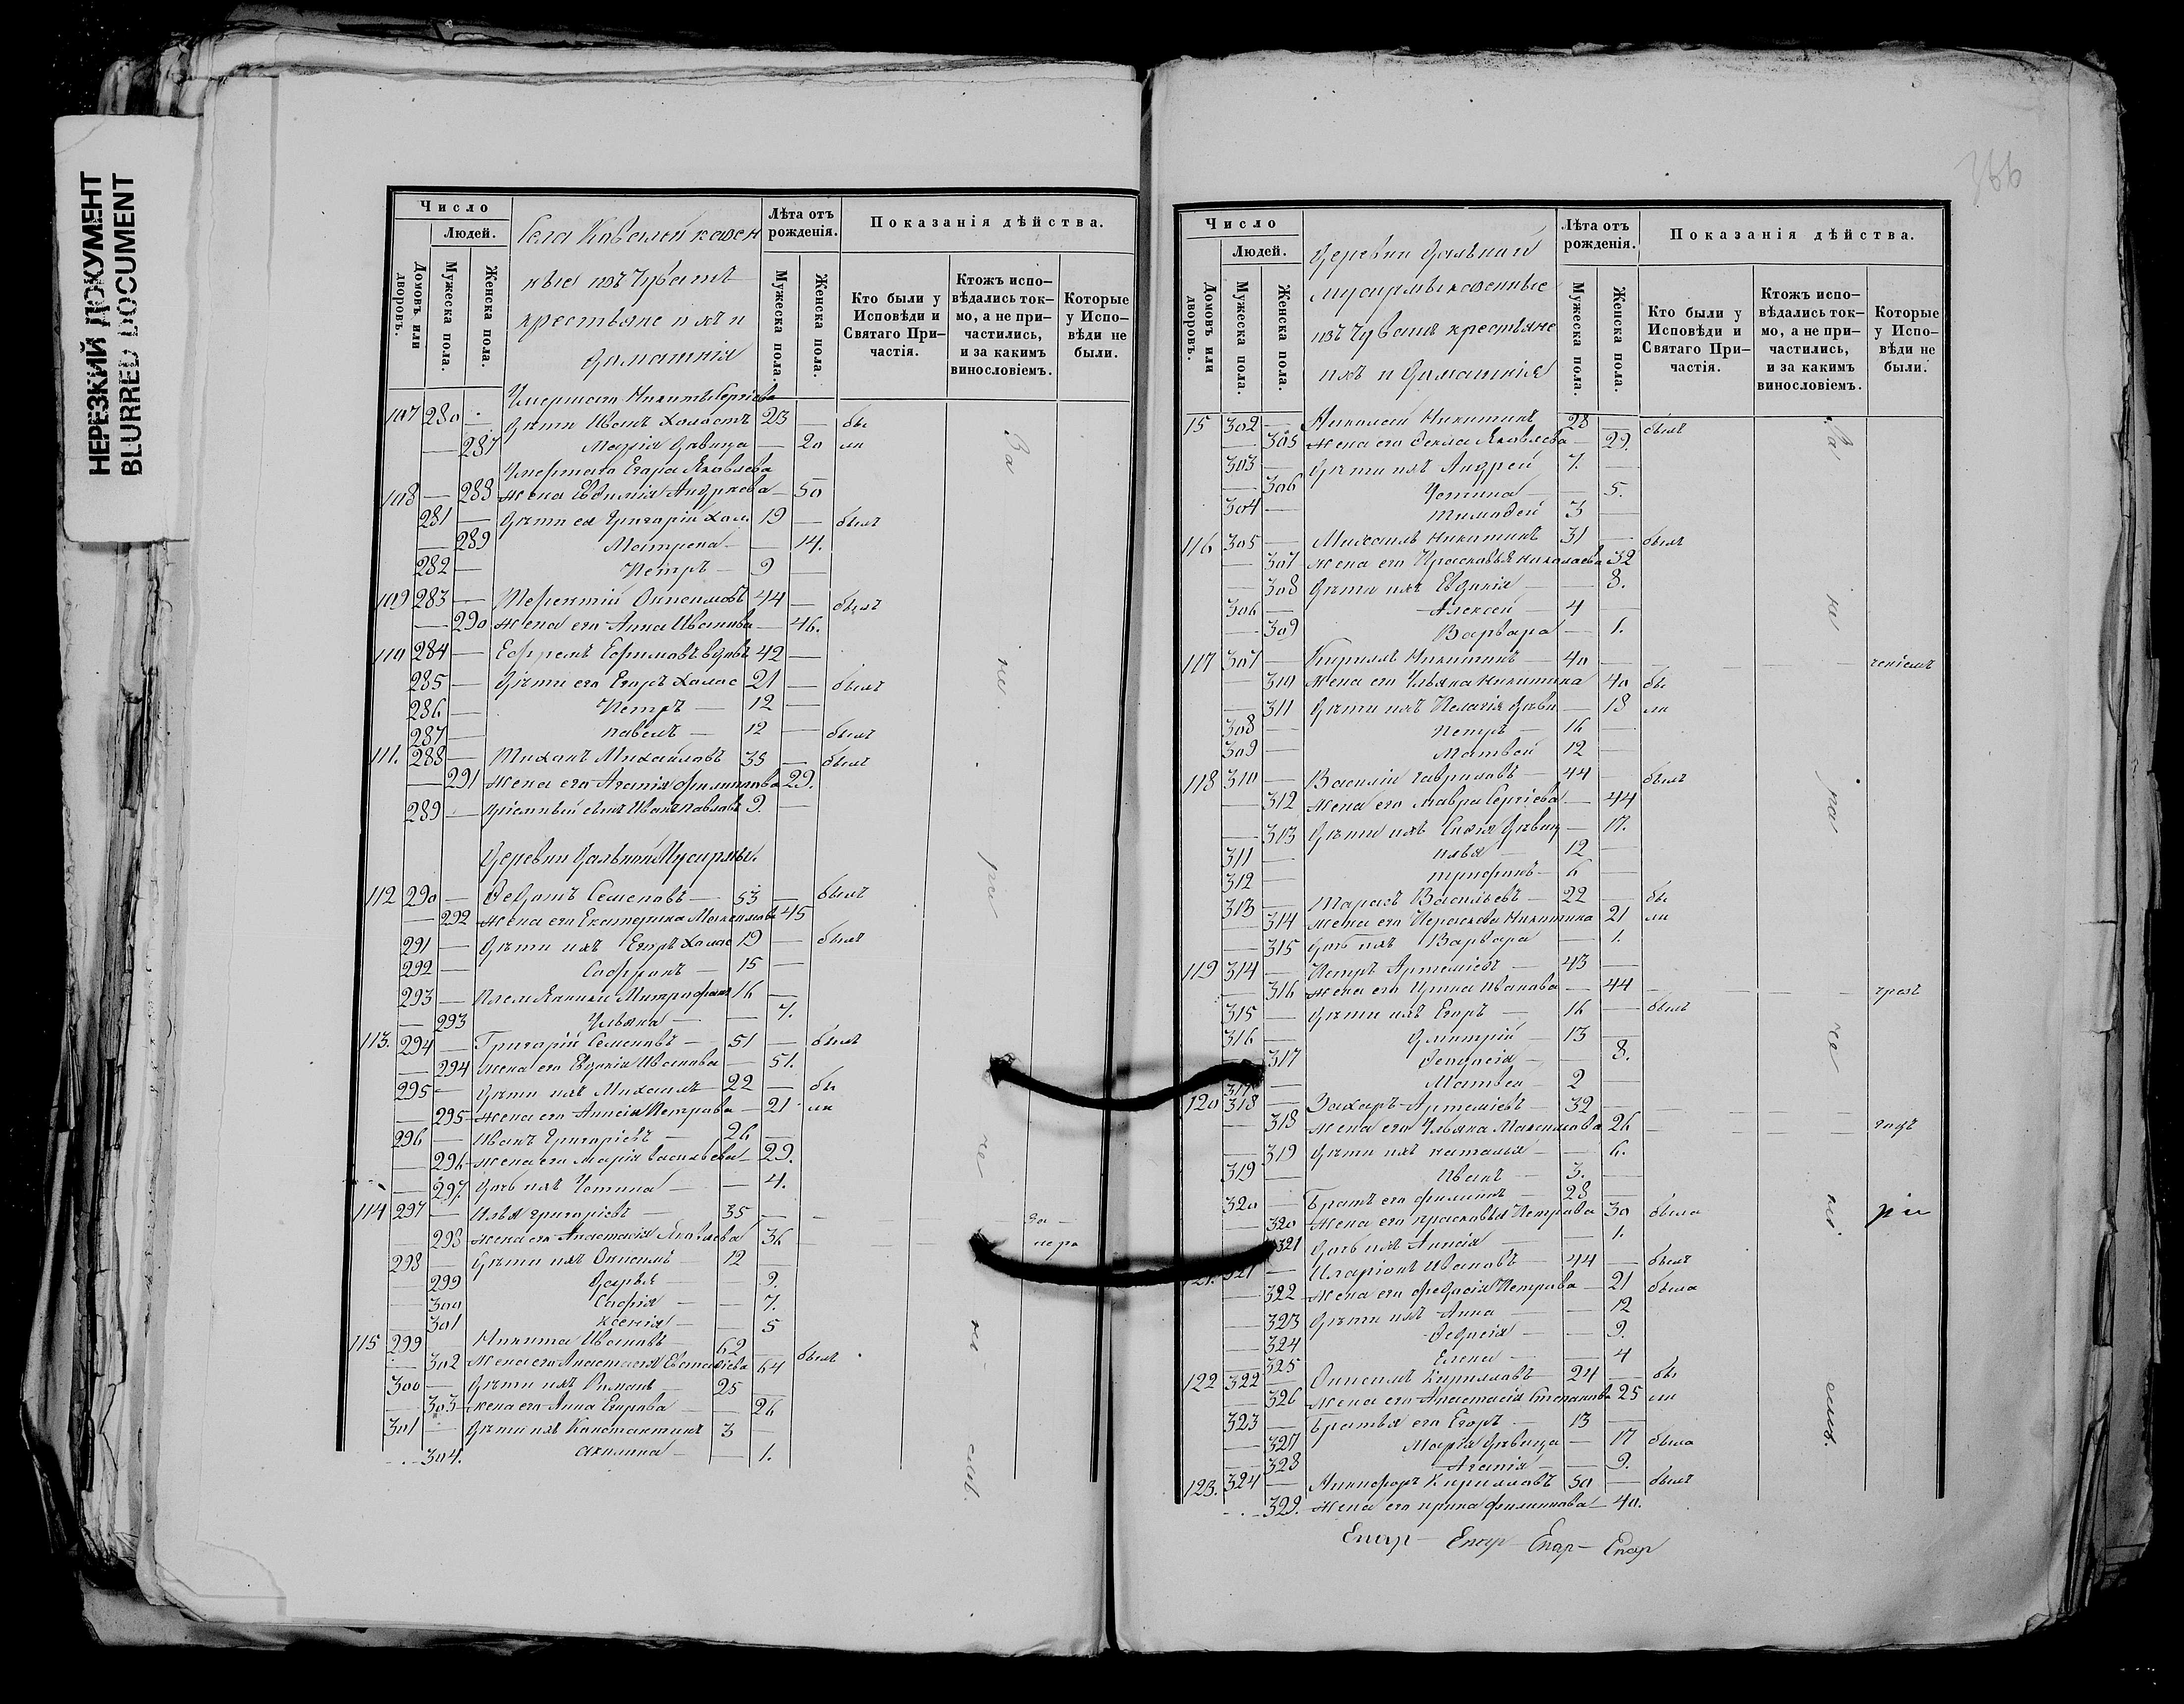 НЕРЕЗКИЙ ДОКУМЕНТ
BLURRED DOCUMENT
Число
Людей.
Домовъ или дворовъ.
Мужеска пола.
Женска пола.
Села Ковалей казен
ные изъ Чувашъ
крестьяне и ихъ
домашнія
Лѣта отъ рожденія.
Мужеска пола.
Женска пола.
Показанія дѣйства.
Кто были у Исповѣди и Святаго При-частія.
Ктожъ испо-вѣдались ток-мо, а не при-частились, и за какимъ винословіемъ.
Которые у Испо-вѣди не были.
Умершаго Никиты Сергѣева
107 280 - дѣти Иванъ Холостъ 23 - бы
- 287 Марія дѣвица - 20 ли
Умершаго Егора Яковлева
108 - 288 жена Евфимія Андреева - 50
281 - дѣти ея Григорій Хол. 19 - былъ
- 289 Матрена - 14.
282 - Петръ - 9 -
109 283 - Терентій Онисимовъ 44 - былъ
- 290 жена его Анна Иванова - 46.
110 284 - Ефремъ Ефимовъ вдовъ 42 -
285 - дѣти его Егоръ Холос 21 - былъ
286 - Петръ - 12 -
287 - павелъ - 12 - былъ
111. 288 - Тихонъ Михайловъ 35 - былъ
- 291 жена его Агапія филиппова 29.
289 - пріемный сынъ Иванъ Павловъ 9. -
Деревни Дальней Мусирмы.
112 290 - Федотъ Семеновъ - 53 - былъ
- 292 жена его Екатерина Максимова 45
291 - дѣти ихъ Егоръ Холос 19 - былъ
292 - Софронъ - 15 -
293 - Племянники Митрофанъ 16 -
- 293 Ульяна - - 7.
113. 294 - Григорій Семеновъ - 51 - былъ
- 294 жена его Евдокія Иванова - 51.
295 - дѣти ихъ Михаилъ - 22 - бы
- 295 - жена его Анисія Петрова - 21 - ли
296 - Иванъ Григорьевъ - 26 -
- 296 - жена его Марія васильева - 29.
- 297. дочь ихъ Устина - - 4.
114 297 - Илья григорьевъ - 35 - -
- 298 жена его Анастасія Яковлева 36
298 - дѣти ихъ Онисимъ - 12 -
- 299 Дарья - - 9.
- 300 Софія - - 7.
- 301 Ксенія - - 5
115 299 Никита Ивановъ - 62 былъ
- 302 жена его Анастасія - 64
300 - дѣти ихъ Романъ - 25
- 303 - жена его Анна Егорова - 26
301 - дѣти ихъ Константинъ 3 -
- 304. Акилина - - 1.
За
не
ра
че
ні
емъ.
366
Число
Людей.
Домовъ или дворовъ.
Мужеска пола.
Женска пола.
Деревни Дальней
Мусирмы казенные
изъ Чувашъ крестьяне
ихъ и Домашнія
Лѣта отъ рожденія.
Мужеска пола.
Женска пола.
Показанія дѣйства.
Кто были у Исповѣди и Святаго При-частія.
Ктожъ испо-вѣдались ток-мо, а не при-частились, и за какимъ винословіемъ.
Которые у Испо-вѣди не были.
15 302 - Николай Никитинъ 28 - былъ
- 305 жена его Фекла Яковлева - 29.
303 - дѣти ихъ Андрей 7. -
- 306 Устина - - 5.
304 - Тимофей 3 -
116 305 - Михаилъ Никитинъ 31 - былъ
- 307 жена его Прасковья николаева 32
- 308 дѣти ихъ Евдокія - - 8.
306 - Алексей - 4 -
- 309 Варвара - 1.
117 307 - Кириллъ Никитинъ - 40 -
- 310 жена его Ульяна Никитина 40 бы
- 311 дѣти ихъ Пелагія дѣви - 18 ли
308 - Петръ - 16 -
309 - Матвей 12 -
118 310 - Василій гавриловъ - 44 - былъ
- 312 жена его Мавра Сергіева - 44
- 313 дѣти ихъ дѣвиц - 17.
311 - илья - 12 -
312 - трифонъ - 6 -
313 - Тарасъ Васильевъ - 22 - бы
- 314 жена его Никитина 21 ли
- 315 дочь ихъ Варвара - 1.
119 314 - Петръ Артеміевъ - 43 -
- 316 жена его Ирина Иванова - 44
315 - дѣти ихъ Егоръ - 16 - былъ
316 - Дмитрій - 13 -
- 317 Феодосія - - 8.
317 - Матвей - 2 -
120 318 - Захаръ Артеміевъ - 32 -
- 318 жена его Ульяна Максимова 26
- 319 дѣти ихъ наталья - - 6.
319 - Иванъ - 3. -
320 - Братъ его филиппъ - 28 -
- 320 жена его прасковья Петрова 30 была
- 321 дочь ихъ Анисія - - 1.
121. 321 - Иларіонъ Ивановъ - 44 - былъ
- 322 жена его Петрова - 21 была
- 323 дѣти ихъ Анна - - 12
- 324 Федосія - - 9.
- 325 Елена - - 4
122 322 - Онисимъ Кирилловъ - 24 - бы
- 326 жена его Анастасія Степанова 25 ли
323 - Братья его Егоръ - 13 -
- 327 Марія дѣвица - 17 была
- 328 Агапія - - 9.
123. 324 - Никифоръ Кирилловъ 50 - былъ
- 329. жена его ирина филиппова - 40.
За
не
ра
че
ні
емъ.